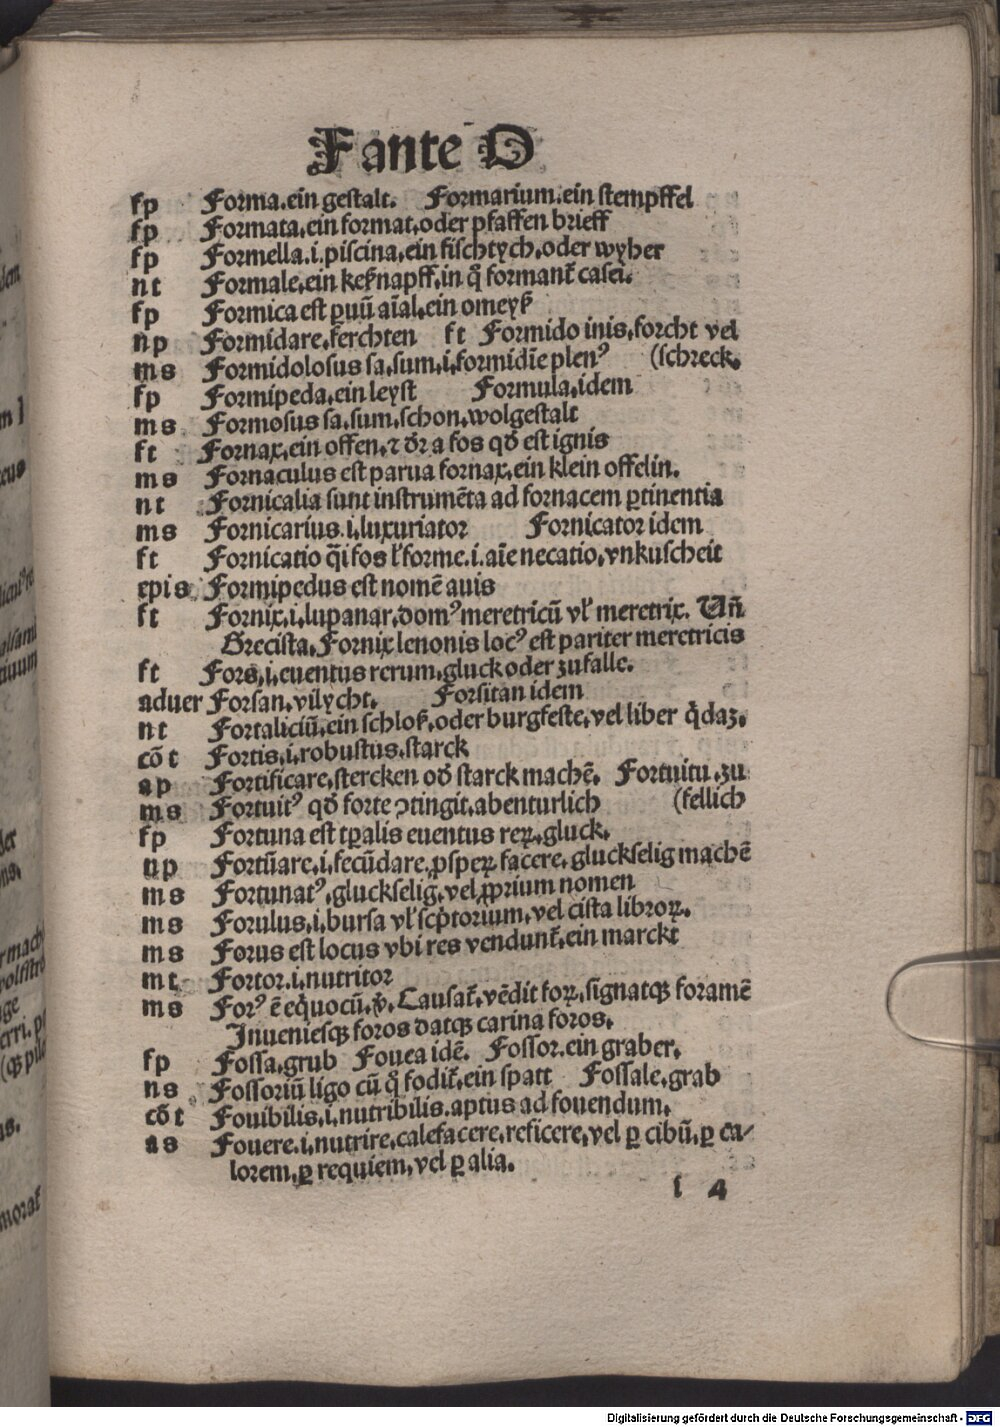 F ante O
fp Forma.ein gestalt. Formarium.ein stempffel
fp Formata.ein format.oder pfaffen brieff
fp Formella.i.piscina.ein fischtych.oder wyher
nt Formale.ein keßnapff.in q̃ formant̃ casei.
fp Formica est ꝑuũ aĩal.ein omeyß
np Formidare.ferchten ft Formido inis.forcht vel
ms Formidolosus sa.sum.i.formidĩe plenꝰ (schreck.
fp Formipeda.ein leyst Formula.idem
ms Formosus sa.sum.schon.wolgestalt
ft Fornax.ein offen.⁊ dr̃ a fos qđ est ignis
ms Fornaculus est parua fornax.ein klein offelin.
nt Fornicalia sunt instrumẽta ad fornacem ꝑtinentia
ms Fornicarius.i.luxuriator Fornicator idem
ft Fornicatio q̃i fos ł forme.i.aĩe necatio.vnkuscheit
epi s Formipedus est nomẽ auis
ft Fornix.i.lupanar.domꝰ meretricũ vł meretrix. Vñ
Grecista.Fornix lenonis locꝰ est pariter meretricis
ft Fors.i.euentus rerum.gluck oder zufalle.
aduer Forsan.vilycht. Forsitan idem
nt Fortaliciũ.ein schloß.oder burgfeste.vel liber q̇daꝫ.
cõ t Fortis.i.robustus.starck
ap Fortificare.stercken od̃ starck machẽ. Fortuitu.zu
ms Fortuitꝰ qđ forte ↄtingit.abenturlich (fellich
fp Fortuna est tꝑalis euentus reꝝ.gluck.
np Fortũare.i.fecũdare.ꝓspeꝝ facere.gluckselig machẽ
ms Fortunatꝰ.gluckselig.vel ꝓprium nomen
ms Forulus.i.bursa vł scp̃torium.vel cista libroꝝ.
ms Forus est locus vbi res vendunt̃.ein marckt
mt Fortor.i.nutritor
ms Forꝰ ẽ eq̇uocũ.ṽ. Causat̃.vẽdit foꝝ.signatqꝫ foramẽ
Inueniesqꝫ foros datqꝫ carina foros.
fp Fossa.grub Fouea idẽ. Fossor.ein graber.
ns Fossoriũ ligo cũ q̃ fodit̃.ein spatt Fossale.grab
cõ t Fouibilis.i.nutribilis.aptus ad fouendum.
as Fouere.i.nutrire.calefacere.reficere.vel ꝑ cibũ.ꝑ ca⸗
lorem.ꝑ requiem.vel ꝑ alia.
l 4
Digitalisierung gefördert durch die Deutsche Forschungsgemeinschaft - DFG